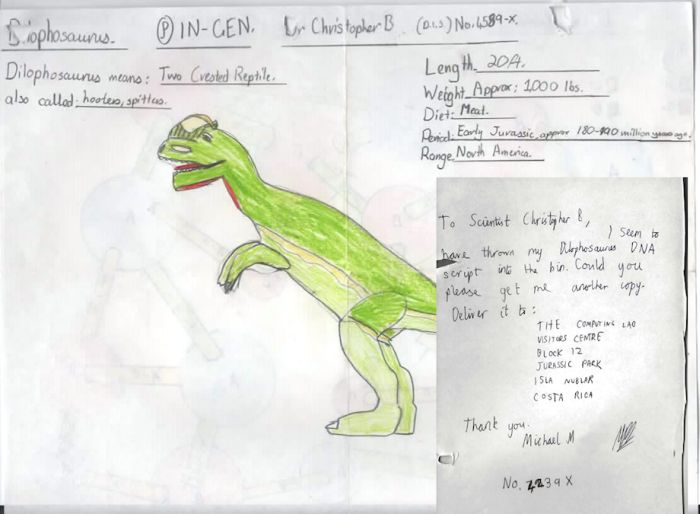 Dilophosaurus. Ⓟ IN-GEN. Dr Christopher B. (D.I.S.) No. 4589-X.
Dilophosaurus means: Two Crested Reptile.
also called: hooters, spitters.
Length 20ft.
Weight Approx: 1,000 lbs.
Diet: Meat.
Period: Early Jurassic, approx 180-190 million years ago.
Range, North America.
To Scientist Christopher B,
I seem to
have thrown my Dilophosaurus DNA
script into the bin. Could you
please get me another copy.
Deliver it to:
THE COMPUTING LAB
VISITORS CENTRE
BLOCK 12
JURASSIC PARK
ISLA NUBLAR
COSTA RICA
Thank you.
Michael M
No. 4239 X